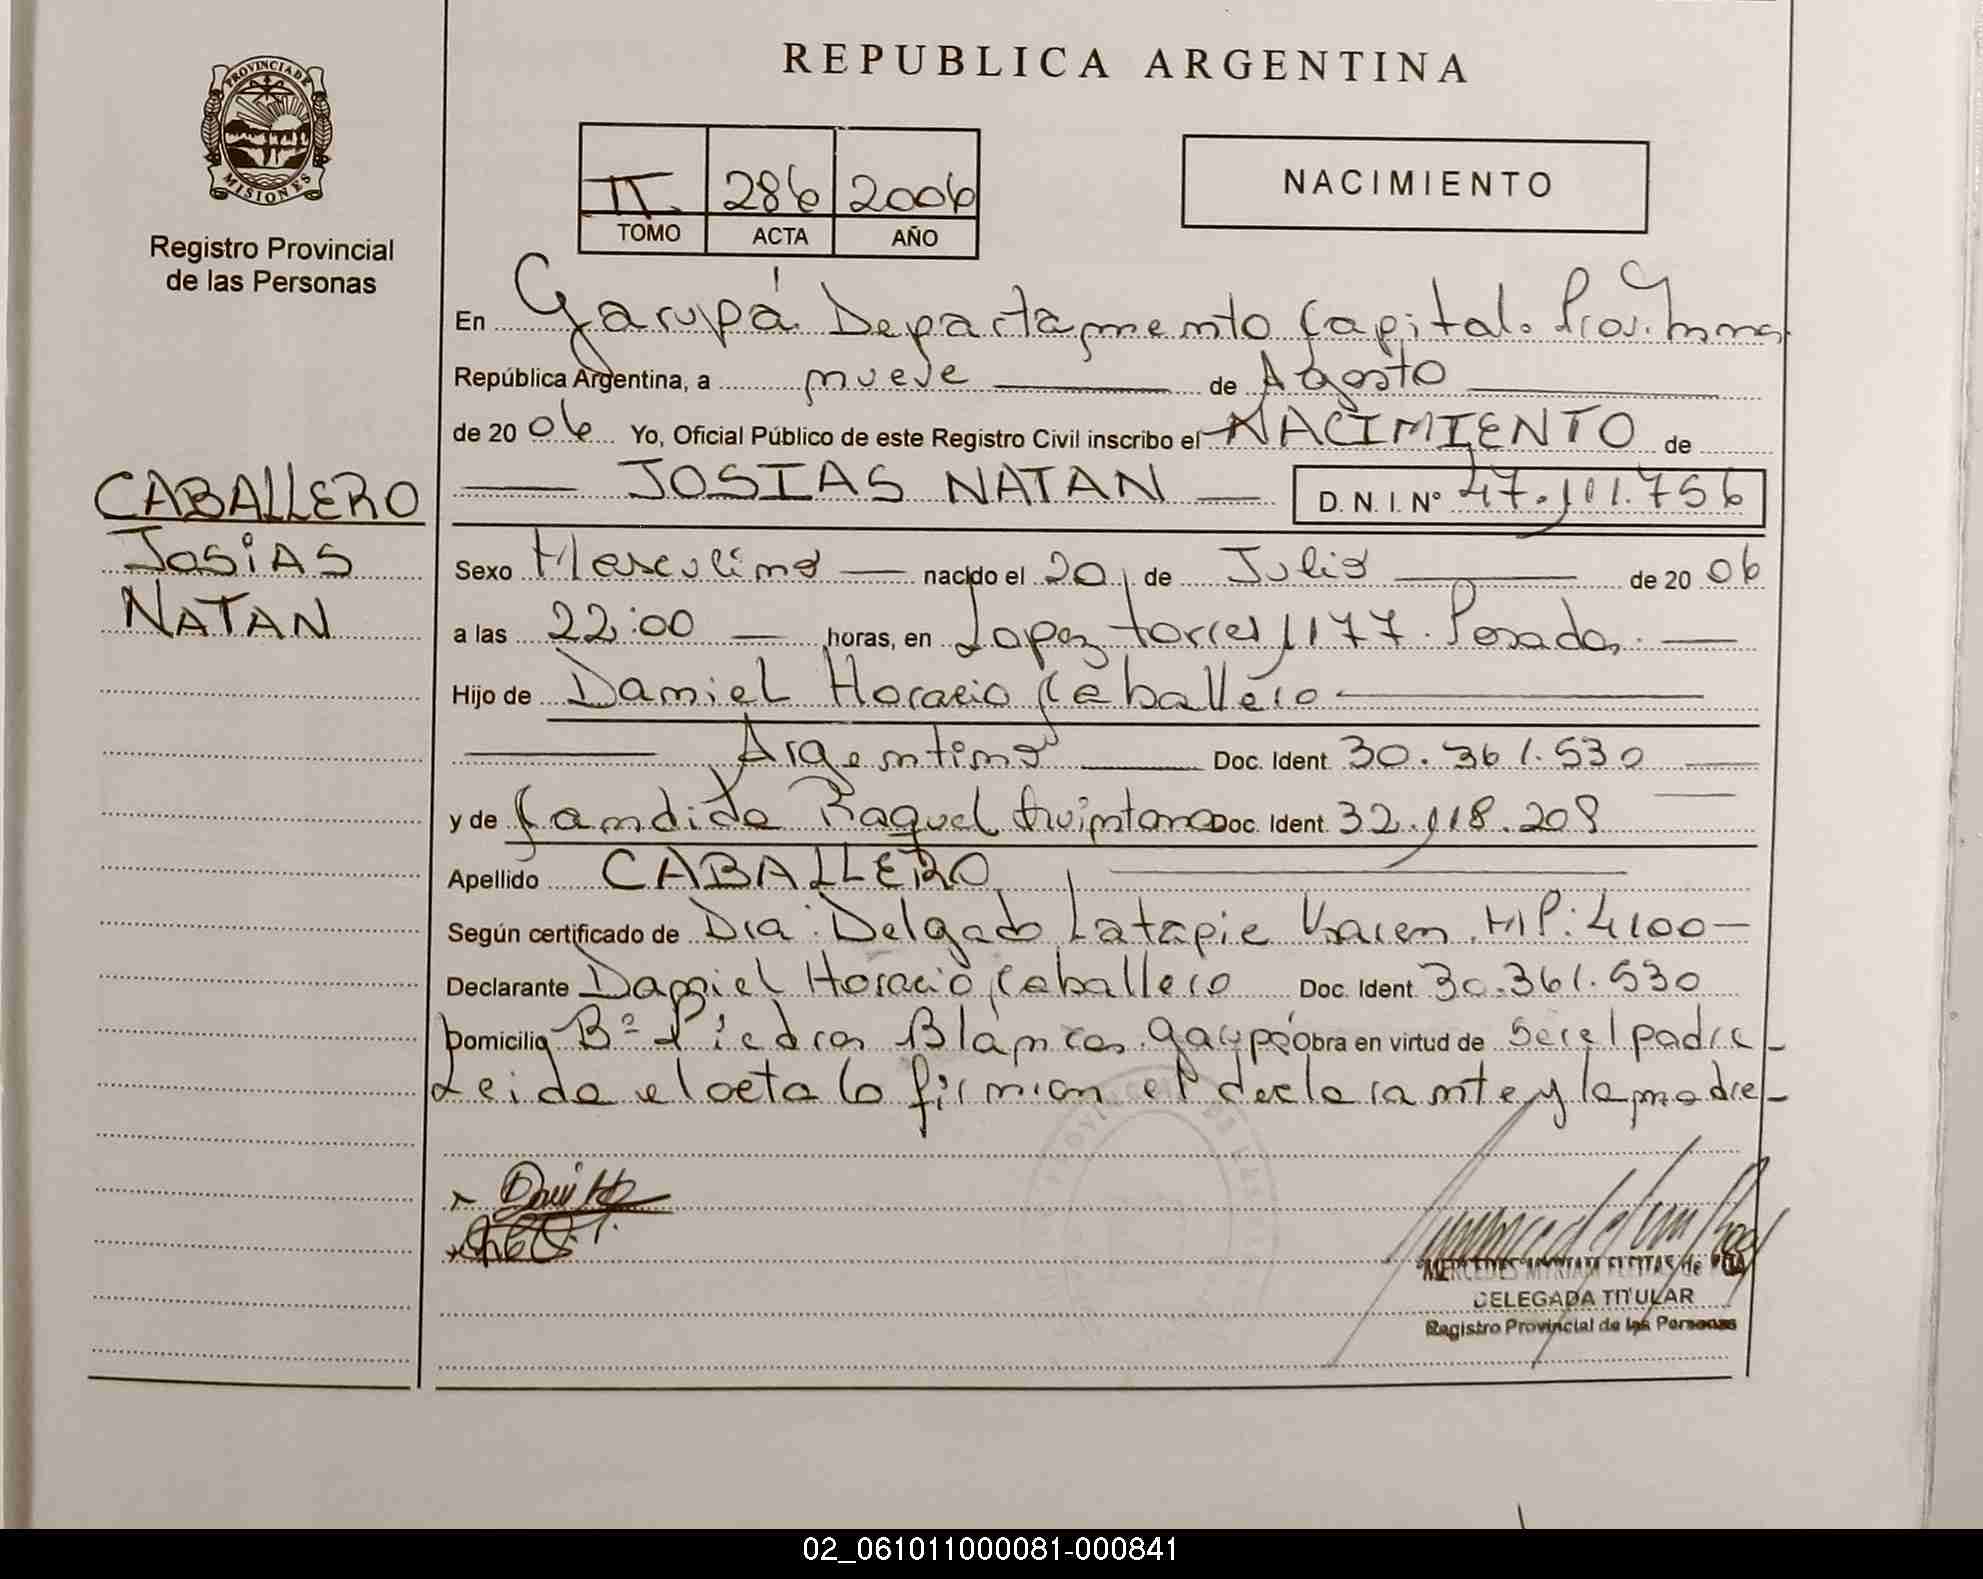 REPUBLICA ARGENTINA
PROVINCIA DE MISIONES
Registro Provincial
de las Personas
II 286 2006
TOMO ACTA AÑO
NACIMIENTO
En Garupá Departamento Capital. Prov. Mnes
República Argentina, a nueve de Agosto
de 2006 Yo, Oficial Público de este Registro Civil inscribo el NACIMIENTO de
JOSIAS NATAN D. N. I. Nº 47.101.756
CABALLERO
JOSIAS
NATAN
Sexo Masculino nacido el 20 de Julio de 2006
a las 22:00 horas, en Lopez torres 1177. Posadas
Hijo de Daniel Horacio Caballero
Argentino Doc. Ident. 30.361.530
y de Candida Raquel Quintana Doc. Ident. 32.118.209
Apellido CABALLERO
Según certificado de Dra: Delgado Latapie Karen. MP: 4100-
Declarante Daniel Horacio Caballero Doc. Ident. 30.361.530
Domicilio Bº Piedras Blancas. Garupá obra en virtud de ser el padre-
Leida el acta la firman el declarante y la madre-
MERCEDES MYRIAM FLEITAS de
DELEGADA TITULAR
Registro Provincial de las Personas
02_061011000081-000841